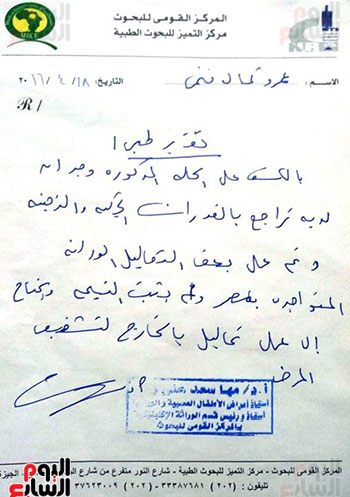 المركز القومى للبحوث
مركز التميز للبحوث الطبية
MRCE
الاسم : عمرو كمال فتحى التاريخ: ١٨ / ٤ / ٢٠١٦
R /
تقرير طبى
بالكشف على الحاله المذكوره وجد انه
لديه تراجع بالقدرات الحركيه والذهنيه
وتم عمل بعض التحاليل الوراثيه
المتواجده بمصر ولم يثبت التشخيص ويحتاج
إلى عمل تحاليل بالخارج لتشخيص
المرض
أ.د/ مها سعد
أستاذ أمراض الأطفال العصبية والوراثية
أستاذ ورئيس قسم الوراثة الإكلينيكية
بالمركز القومى للبحوث
المركز القومى للبحوث - مركز التميز للبحوث الطبية - شارع النور متفرع من شارع
تليفون : (٢٠٢) ٣٣٣٨٧٦٨١ / (٢٠٢) ٣٧٦٢٣٠٠٩
اليوم السابع